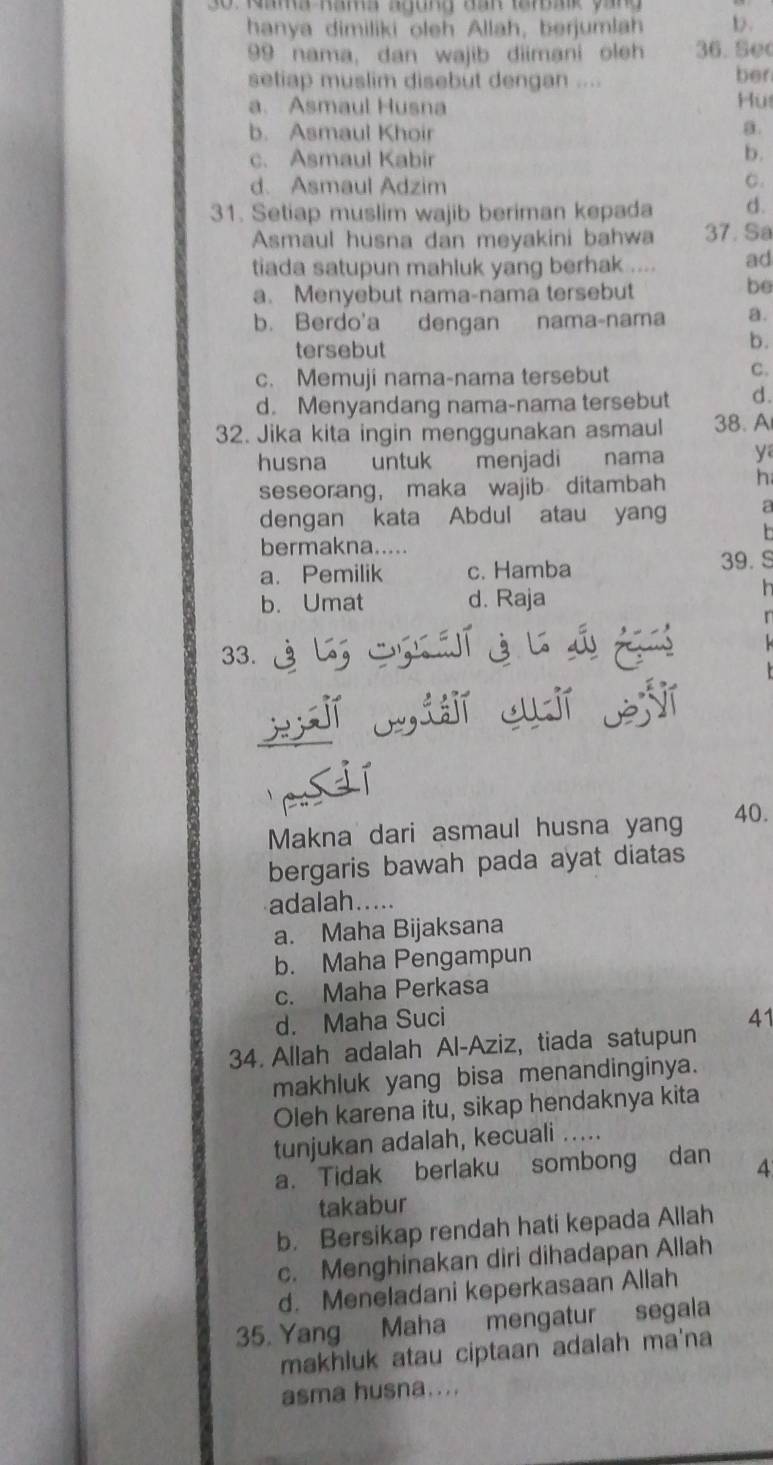 30. Nama-nama agung dan terbaik yang
hanya dimiliki oleh Allah, berjumlah
99 nama, dan wajib diimani oleh
setiap muslim disebut dengan ....
a. Asmaul Husna
b. Asmaul Khoir
c. Asmaul Kabir
d. Asmaul Adzim
31. Setiap muslim wajib beriman kepada
Asmaul husna dan meyakini bahwa
tiada satupun mahluk yang berhak ....
a. Menyebut nama-nama tersebut
b. Berdo'a dengan nama-nama
tersebut
c. Memuji nama-nama tersebut
d. Menyandang nama-nama tersebut
32. Jika kita ingin menggunakan asmaul
husna untuk menjadi nama
seseorang, maka wajib ditambah
dengan kata Abdul atau yang
bermakna.....
a. Pemilik c. Hamba
b. Umat d. Raja
33. يُسَبِّحُ لِلَّهِ مَا فِي ٱلسَّمَٰوَٰتِ وَمَا فِي
ٱلْأَرْضِ ٱلْمَلِكِ ٱلْقُدُّوسِ ٱلْعَزِيزِ
ٱلْحَكِيمِ ١
Makna dari asmaul husna yang
bergaris bawah pada ayat diatas
adalah.....
a. Maha Bijaksana
b. Maha Pengampun
c. Maha Perkasa
d. Maha Suci
34. Allah adalah Al-Aziz, tiada satupun
makhluk yang bisa menandinginya.
Oleh karena itu, sikap hendaknya kita
tunjukan adalah, kecuali .....
a. Tidak berlaku sombong dan
takabur
b. Bersikap rendah hati kepada Allah
c. Menghinakan diri dihadapan Allah
d. Meneladani keperkasaan Allah
35. Yang Maha mengatur segala
makhluk atau ciptaan adalah ma'na
asma husna....
b.
36. Sec
ber
Hus
a.
b.
c.
d.
37. Sa
ad
be
a.
b.
c.
d.
38. A
ya
ha
a
b
39. S
h
40.
41
4